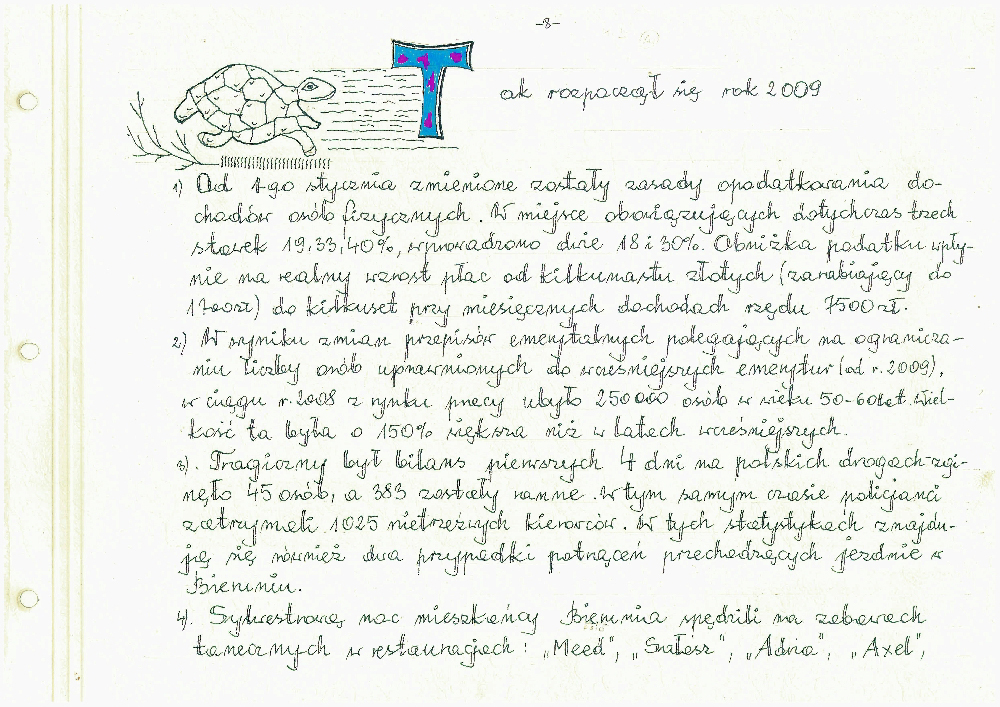 -8-
Tak rozpoczął się rok 2009
1) Od 1-go stycznia zmienione zostały zasady opodatkowania do-
chodów osób fizycznych. W miejsce obowiązujących dotychczas trzech
stawek 19,33,40%, wprowadzono dwie 18 i 30%. Obniżka podatku wpły-
nie na realny wzrost płac od kilkunastu złotych (zarabiający do
1200zł) do kilkuset przy miesięcznych dochodach rzędu 7500 zł.
2) W wyniku zmian przepisów emerytalnych polegających na ogranicza-
niu liczby osób uprawnionych do wcześniejszych emerytur (od r. 2009),
w ciągu r. 2008 z rynku pracy ubyło 250000 osób w wieku 50-60lat. Wiel-
kość ta była o 150% większa niż w latach wcześniejszych.
3). Tragiczny był bilans pierwszych 4 dni na polskich drogach-zgi-
nęło 45 osób, a 383 zostały ranne. W tym samym czasie policjanci
zatrzymali 1025 nietrzeźwych kierowców. W tych statystykach znajdu-
ją się również dwa przypadki potrąceń przechodzących jezdnie w
Bieruniu.
4). Sylwestrową noc mieszkańcy Bierunia spędzili na zabawach
tanecznych w restauracjach: „Meed", „Szałasz", „Adria", „Axel",